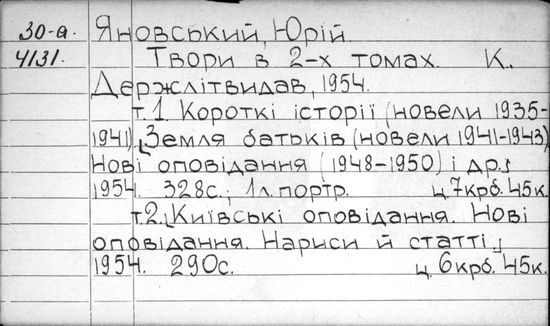 30-а. Яновський, Юрій.
4131. Твори в 2-х томах. К.,
Держлітвидав, 1954.
т.1. Короткі історії (новели 1935-
1941). Земля батьків (новели 1941-1943).
Нові оповідання (1948-1950) і др.
1954. 328с.; 1л.портр. ц.7крб.45к.
т.2. Київські оповідання. Нові
оповідання. Нариси й статті.
1954. 290с. ц.6крб.45к.